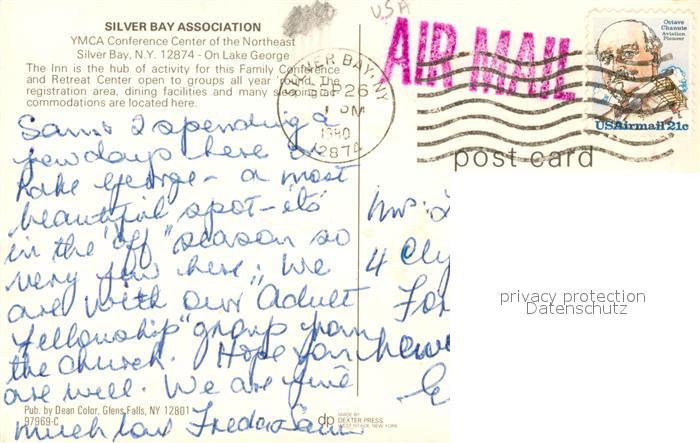 SILVER BAY ASSOCIATION
YMCA Conference Center of the Northeast
Silver Bay, N.Y. 12874 - On Lake George
The Inn is the hub of activity for this Family Conference
and Retreat Center open to groups all year round. The
registration area, dining facilities and many sleeping ac-
commodations are located here.
USA
AIR MAIL
SILVER BAY, NY
SEP 26
PM
1980
12874
Octave
Chanute
Aviation
Pioneer
USAirmail 21c
post card
Sam & I spending a
few days here on
Lake George - a most
beautiful spot - it's
in the "off" season so
very few here. We
are with our "Adult
Fellowship" group from
the Church. Hope you
are well. We are fine
much love Freda & Sam
Mrs.
4 Cly
For
privacy protection
Datenschutz
Pub. by Dean Color, Glens Falls, NY 12801
97969-C
dp MADE BY
DEXTER PRESS
WEST NYACK, NEW YORK